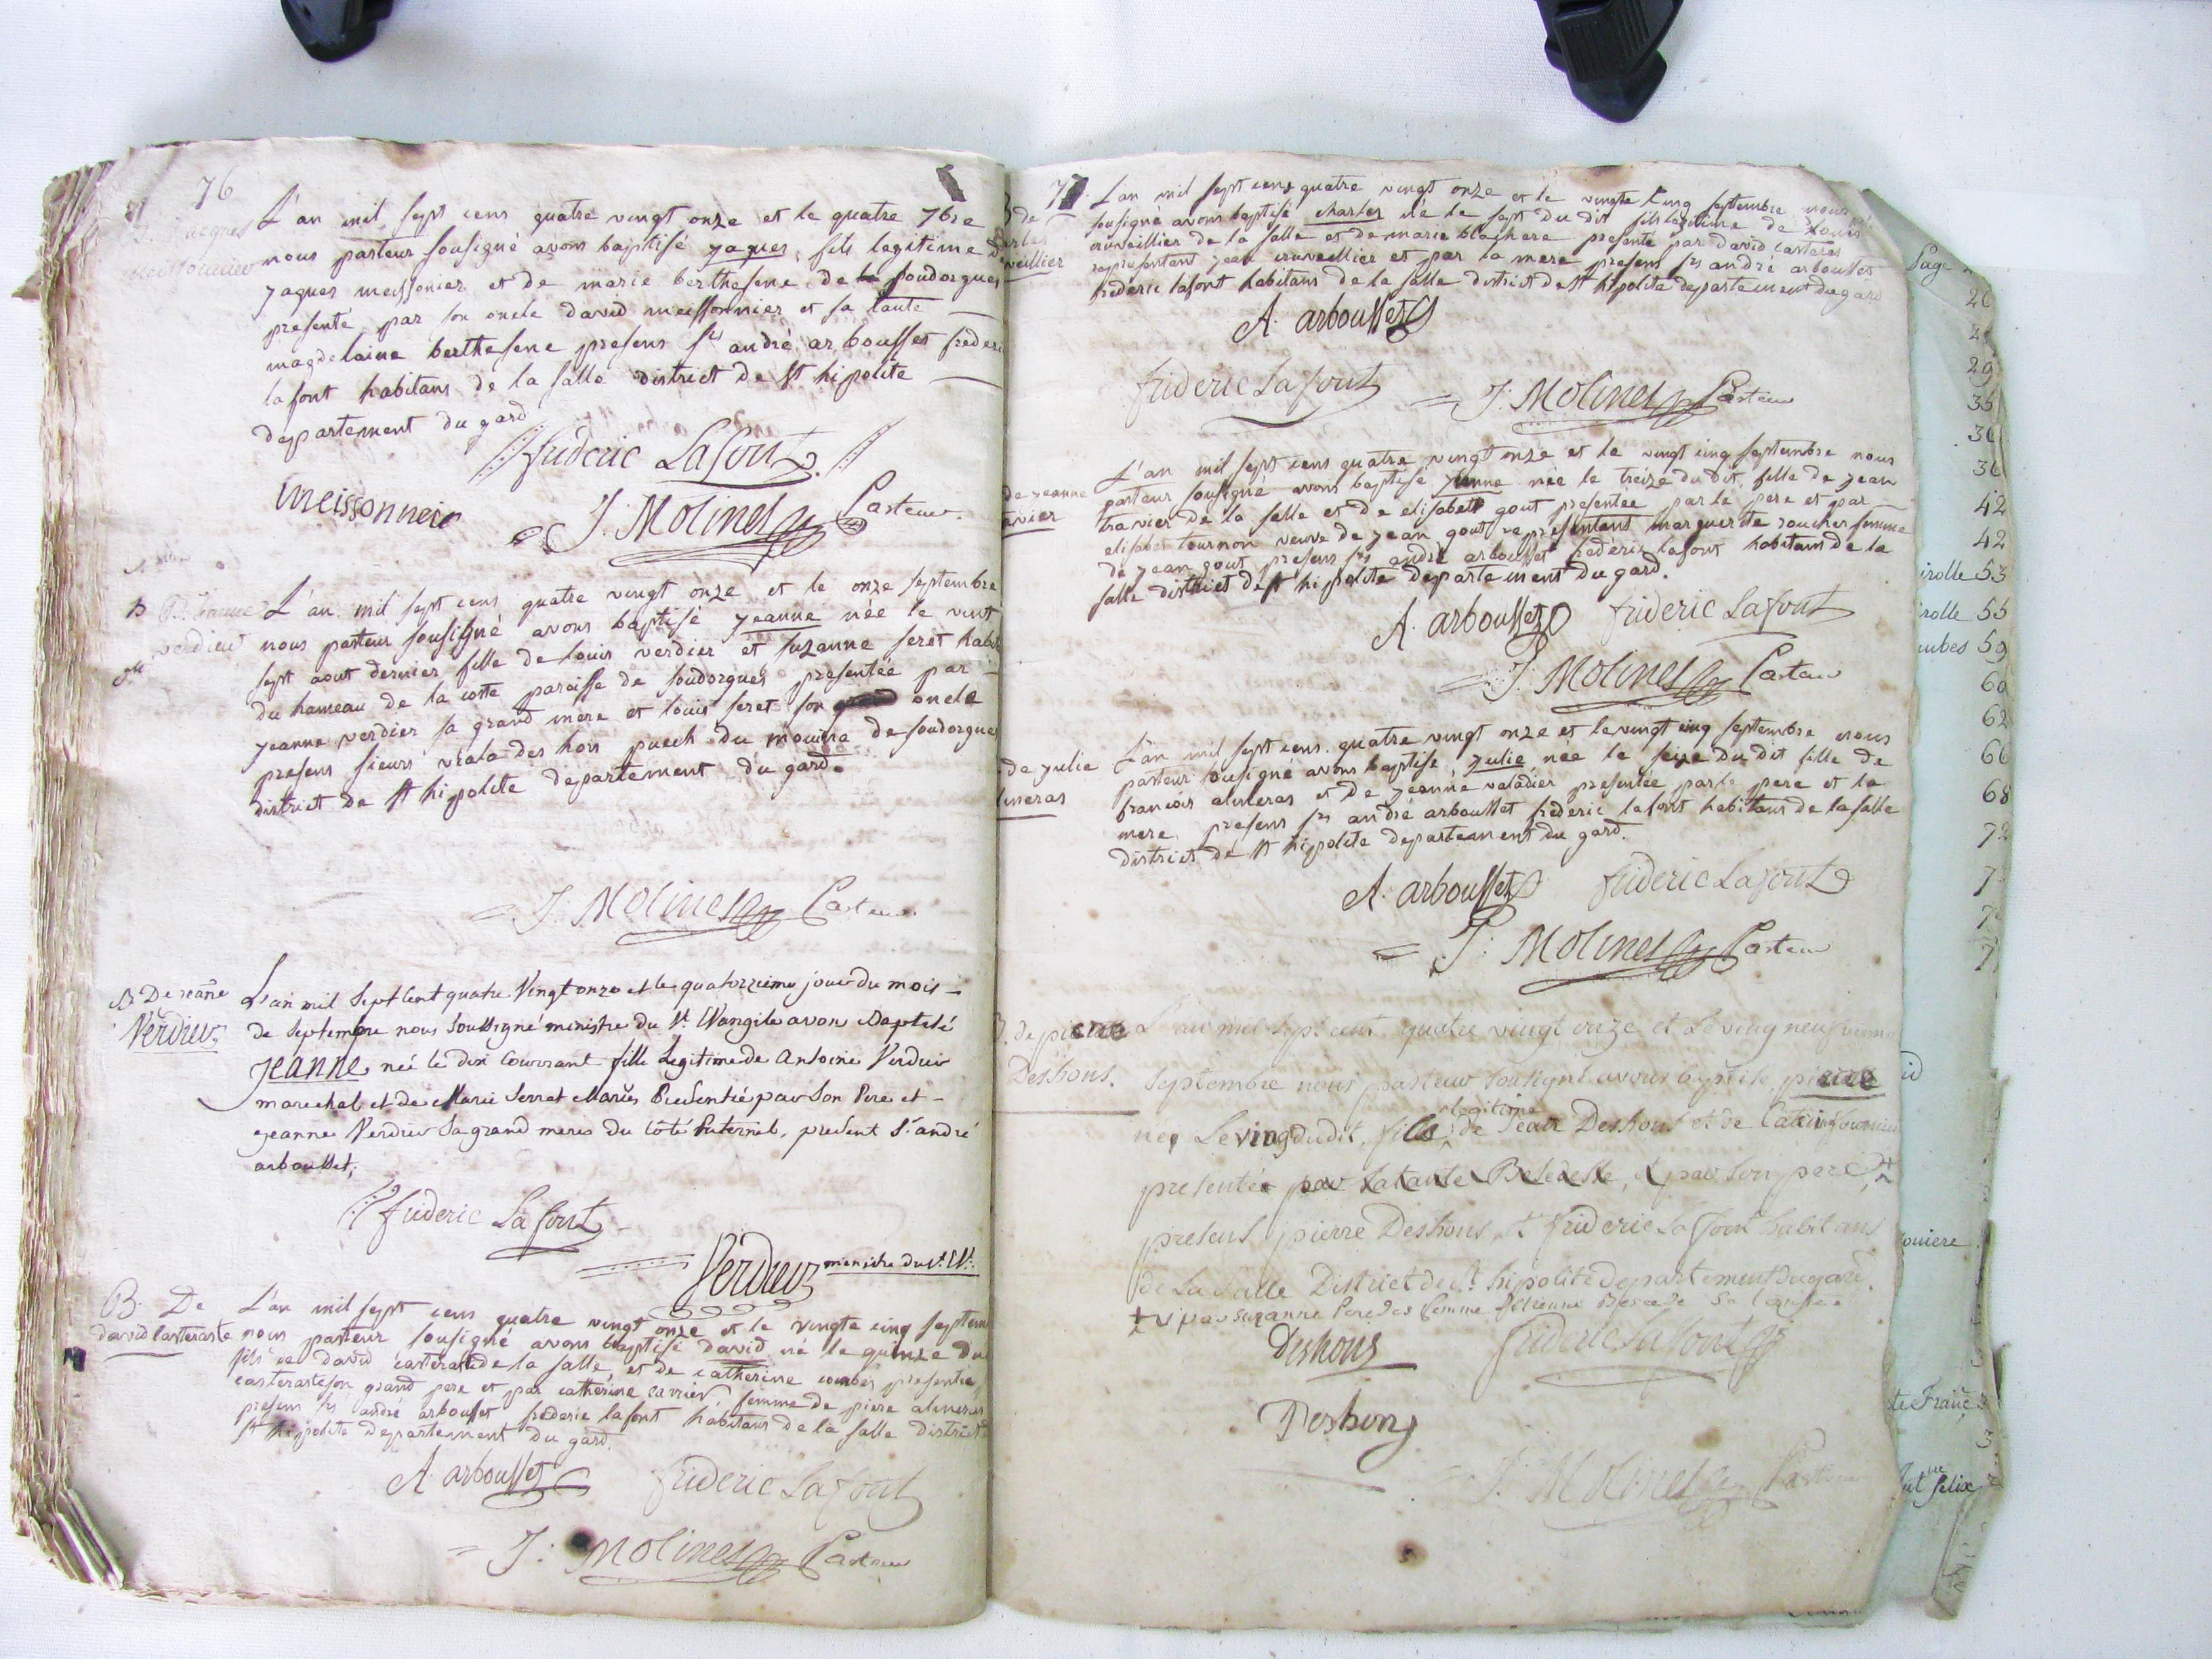 76
B. Jacques
Meissonnier
L'an mil sept cens quatre vingt onze et le quatre 7bre
nous pasteur sousigné avons baptisé jaques, fils legitime de
jaques meissonier et de marie berthesene de soudorgues
presenté par son oncle david meissonnier et sa tante
magdelaine berthesene presens srs andré arbousset frederic
lafont habitans de la salle district de st hipolite
departement du gard
frideric Lafont
Meissonnier
J. Molines Pasteur
B. Jeanne
verdier
L'an mil sept cens quatre vingt onze et le onze septembre
nous pasteur sousigné avons baptisé jeanne née le vint
sept aout dernier fille de louis verdier et suzanne seret habit
du hameau de la coste paroisse de soudorgues presentée par
jeanne verdier sa grand mere et louis seret son oncle
presens sieurs viala des hors puech du mouina de soudorgues
district de st hipolite departement du gard.
J. Molines Pasteur
B. De Jeañe
Verdier
L'an mil sept Cent quatre Vingt onze et le quatorzieme jour du mois
de Septembre nous Soussigné ministre du St. Evangile avons Baptisé
Jeanne née le dix Courrant fille Legitime de Antoine Verdier
marechal et de Marie Serret Mariés Presentée par Son Pere et
jeanne Verdier Sa grand mere du Côté Paternel, present Sr. andré
arbousset;
frideric Lafont
Verdier ministre du St. Ev:
B. De
david Casteraste
L'an mil sept cens quatre vingt onze et le vingte cinq septem
nous pasteur sousigné avons baptisé david né le quinze du
fils de david casteraste de la salle, et de catherine combes presenté
casteraste son grand pere et par catherine carrier femme de piere almeras
presens srs andré arbousset frederic lafont habitans de la salle district
st hipolite departement du gard.
A. arbousset frideric Lafont
J. Molines Pasteur
77
B de
arles
veillier
L'an mil sept cens quatre vingt onze et le vingte cinq septembre nous
sousigné avons baptisé charles né le sept du dit fils legitime de Louis
cruveillier de la salle et de marie blachere presenté par david casteras
representant jean cruveillier et par la mere presens srs andré arbousset
frederic lafont habitans de la salle district de st hipolite departement du gard
A. arbousset
frideric Lafont
J. Molines Pasteur
de jeanne
avier
L'an mil sept cens quatre vingt onze et le vingt cinq septembre nous
pasteur sousigné avons baptisé jeanne née le treize du dit, fille de jean
travier de la salle et de elisabeth gout presentée par le pere et par
elisabet tournon veuve de jean gout representant marguerite soucher femme
de jean gout presens srs andré arbousset frederic lafont habitans de la
salle district de st hipolite departement du gard.
A. arbousset frideric Lafont
J. Molines Pasteur
de julie
lmeras
L'an mil sept cens quatre vingt onze et le vingt cinq septembre nous
pasteur sousigné avons baptisé julie née le seize du dit fille de
francois almeras et de jeanne valadier presentée par le pere et la
mere, presens srs andré arbousset frederic lafont habitans de la salle
district de st hipolite departement du gard.
A. arbousset frideric Lafont
J. Molines Pasteur
B. de pierre
Deshons.
L'an mil sept cent quatre vingt onze et le ving neuf
septembre nous pasteur sousigné avons baptisé pierre
né le ving dudit, fils legitime de Jean Deshons et de Catin
presenté par sa tante Besedelle, et par son pere
present pierre Deshons, et frideric Lafont habitans
de La Salle District de st. hipolite departement du gard.
par Suzanne femme sa tante
Deshons frideric Lafont
Deshons
J. Molines Pasteur
Page
26
29
36
42
42
irolle 53
rolle 55
mbes 59
60
62
66
68
72
oniere
te Franc
felix